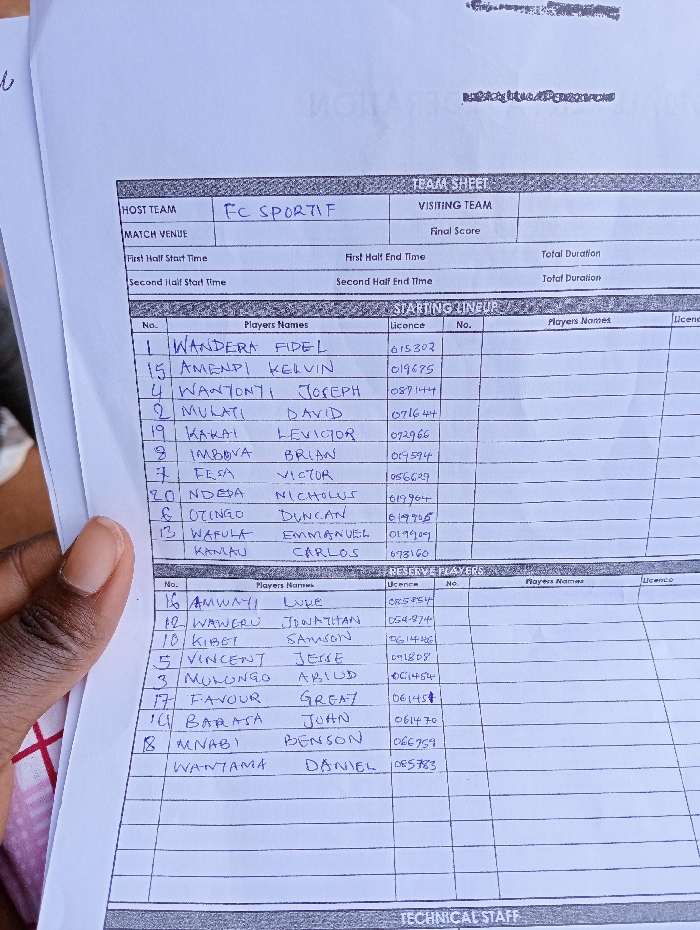 TEAM SHEET
HOST TEAM FC SPORTIF VISITING TEAM
MATCH VENUE Final Score
First Half Start Time First Half End Time Total Duration
Second Half Start Time Second Half End Time Total Duration
STARTING LINEUP
No. Players Names Licence No. Players Names Licenc
1 WANDERA FIDEL 015302
15 AMENDI KELVIN 019675
4 WANYONYI JOSEPH 087144
2 MULATI DAVID 071644
19 KAKAI LEVICTOR 072966
8 IMBOVA BRIAN 019594
7 FESA VICTOR 056629
20 NDEDA NICHOLUS 019904
6 OTINGO DUNCAN 019905
13 WAFULA EMMANUEL 019909
KAMAU CARLOS 073160
RESERVE PLAYERS
No. Players Names Licence No. Players Names Licence
16 AMWAYI LUKE 085854
12 WAWERU JONATHAN 054874
10 KIBET SAMSON
5 VINCENT JESSE 091808
3 MULONGO ABIUD 061454
17 FAVOUR GREAT
14 BARASA JOHN 061470
18 MNABI BENSON 066759
WANYAMA DANIEL 085783
TECHNICAL STAFF